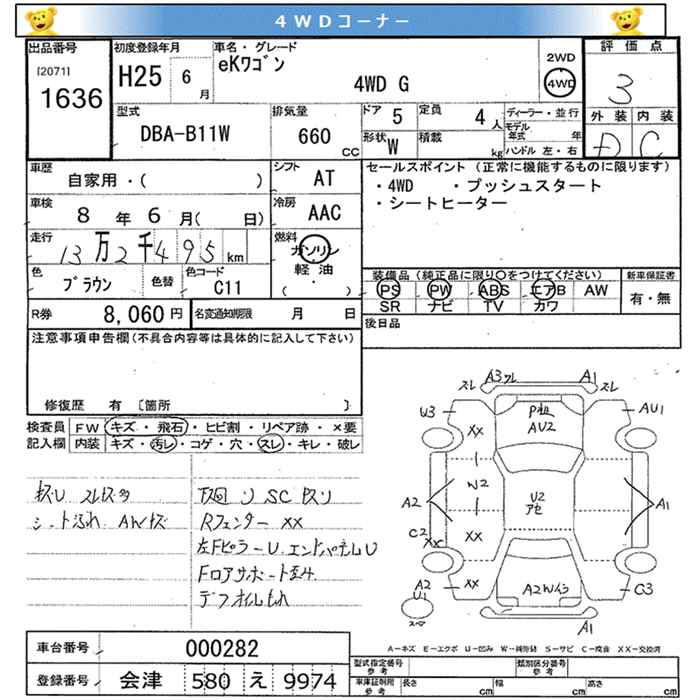 4WDコーナー
出品番号
[2071]
1636
初度登録年月
H25 6 月
車名・グレード
eKワゴン
4WD G
2WD
4WD
評価点
3
外装 内装
D C
型式
DBA-B11W
排気量
660 CC
ドア 5
定員 4 人
形状 W
積載 kg
ディーラー・並行
モデル年式 年
ハンドル 左・右
車歴
自家用・( )
シフト
AT
車検
8 年 6 月( 日)
冷房
AAC
走行
13万2千495 km
燃料
ガソリン
軽油・
( )
色
ブラウン
色替
色コード
C11
セールスポイント (正常に機能するものに限ります)
・4WD ・プッシュスタート
・シートヒーター
装備品 (純正品に限り〇をつけてください)
PS PW ABS エアB AW
SR ナビ TV カワ
新車保証書
有・無
R券 8,060 円
名変通知期限 月 日
後日品
注意事項申告欄(不具合内容等は具体的に記入して下さい)
修復歴 有 〔箇所 〕
検査員 FW キズ・飛石・ヒビ割・リペア跡・×要
記入欄 内装 キズ・汚レ・コゲ・穴・スレ・キレ・破レ
キズU スレキズ多
シート汚れ AWキズ
下廻 サ SC キズサ
Rフェンダー XX
左Fピラー U エンドパネル U
Fロアサポート
デフオイルもれ
スレ A3 ワレ A1 スレ
U3 AU1
XX
AU2
W2
U2
アセ
A2 A1
C2 XX
XX
XX
A2
U1
A2W
C3
A1
A=キズ E=エクボ U=凹み W=補修跡 S=サビ C=腐食 XX=交換済
車台番号 000282
登録番号 会津 580 え 9974
型式指定番号
参考
類別区分番号
参考
車庫証明用
参考
長さ cm
幅 cm
高さ cm